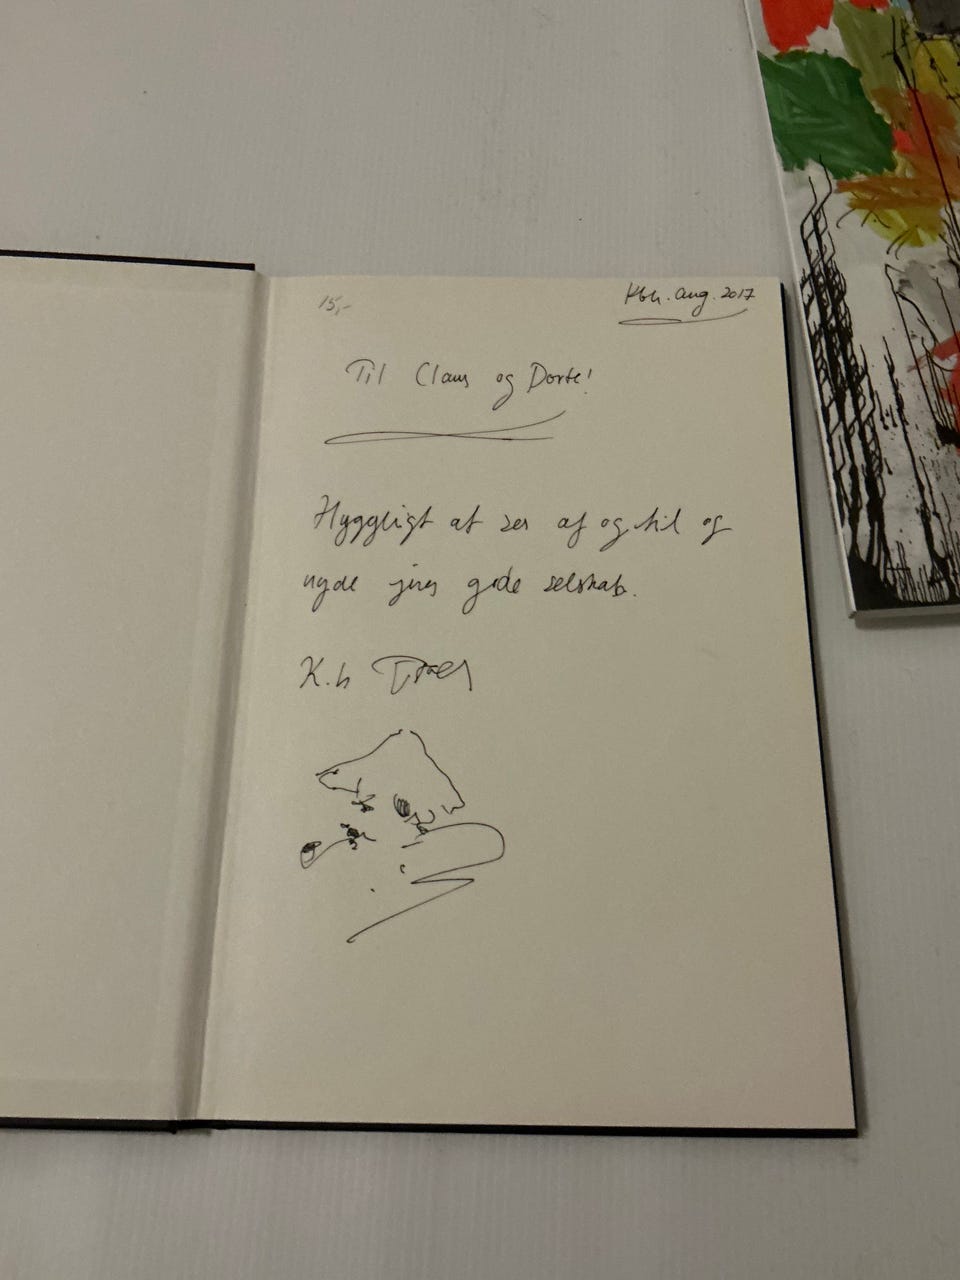 15,-
Kbh. aug. 2017
Til Claus og Dorte!
Hyggligt at ses af og til og
nyde jires gode selskab.
K.h